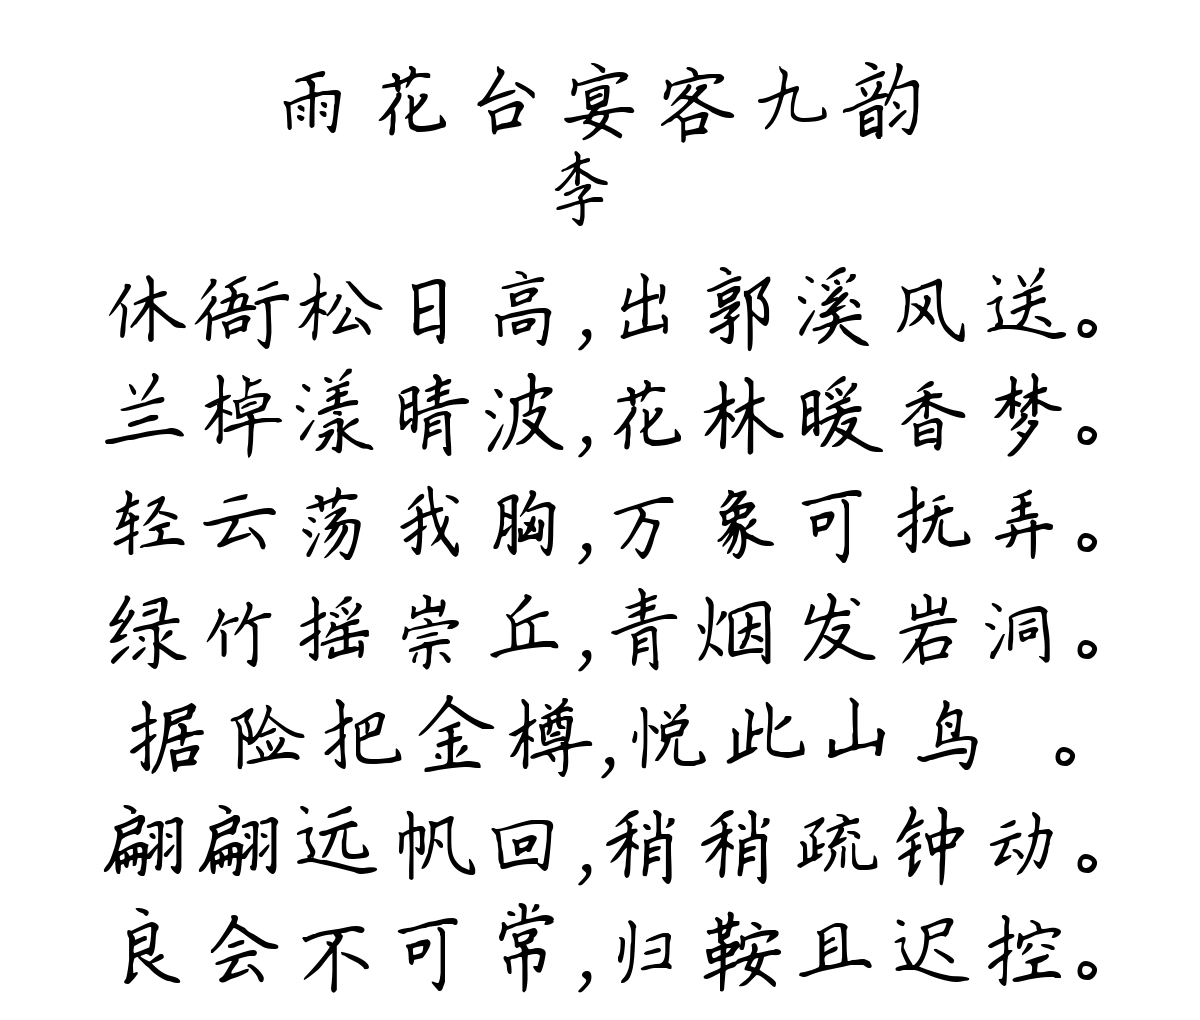 雨花台宴客九韵
李
休衙松日高,出郭溪风送。
兰棹漾晴波,花林暖香梦。
轻云荡我胸,万象可抚弄。
绿竹摇崇丘,青烟发岩洞。
据险把金樽,悦此山鸟 。
翩翩远帆回,稍稍疏钟动。
良会不可常,归鞍且迟控。